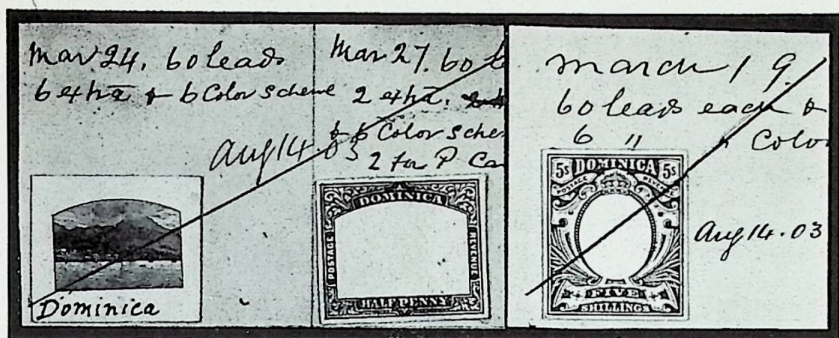 Mar 24. 60 leads
6 extra + 6 Color Scheme
Aug 14.03
Dominica
Mar 27. 60
2 extra.
6 Color Sche
2 for P Ca
DOMINICA
POSTAGE
REVENUE
HALFPENNY
March 19.
60 leads each
6 " Color
5s DOMINICA 5s
POSTAGE
FIVE
SHILLINGS
Aug 14.03